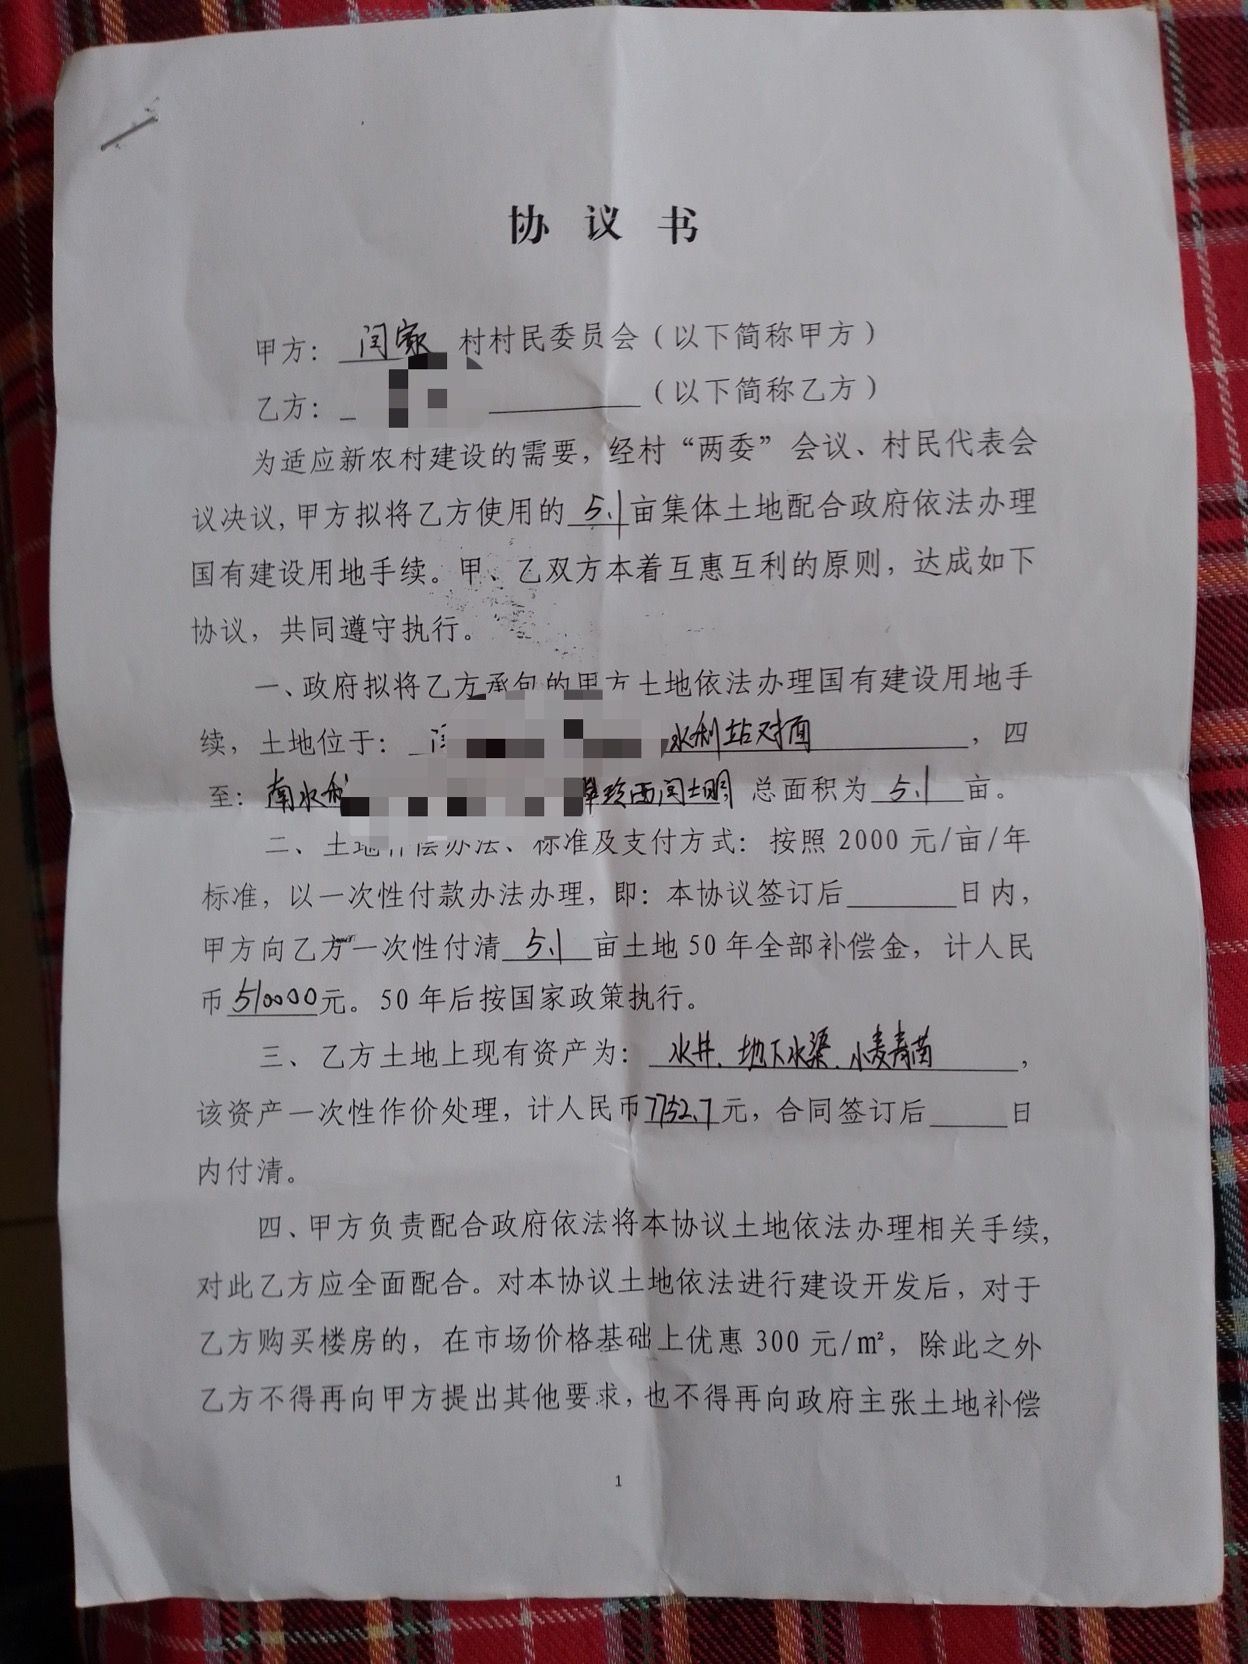 协议书
甲方：闫家村村民委员会（以下简称甲方）
乙方：（以下简称乙方）
为适应新农村建设的需要，经村“两委”会议、村民代表会
议决议，甲方拟将乙方使用的5.1亩集体土地配合政府依法办理
国有建设用地手续。甲、乙双方本着互惠互利的原则，达成如下
协议，共同遵守执行。
一、政府拟将乙方承包的甲方土地依法办理国有建设用地手
续，土地位于：水利站对面，四
至：南水西闫士明总面积为5.1亩。
二、土地补偿办法、标准及支付方式：按照2000元/亩/年
标准，以一次性付款办法办理，即：本协议签订后____日内，
甲方向乙方一次性付清5.1亩土地50年全部补偿金，计人民
币510000元。50年后按国家政策执行。
三、乙方土地上现有资产为：水井、地下水渠、小麦青苗，
该资产一次性作价处理，计人民币7752.7元，合同签订后____日
内付清。
四、甲方负责配合政府依法将本协议土地依法办理相关手续，
对此乙方应全面配合。对本协议土地依法进行建设开发后，对于
乙方购买楼房的，在市场价格基础上优惠300元/㎡，除此之外
乙方不得再向甲方提出其他要求，也不得再向政府主张土地补偿
1